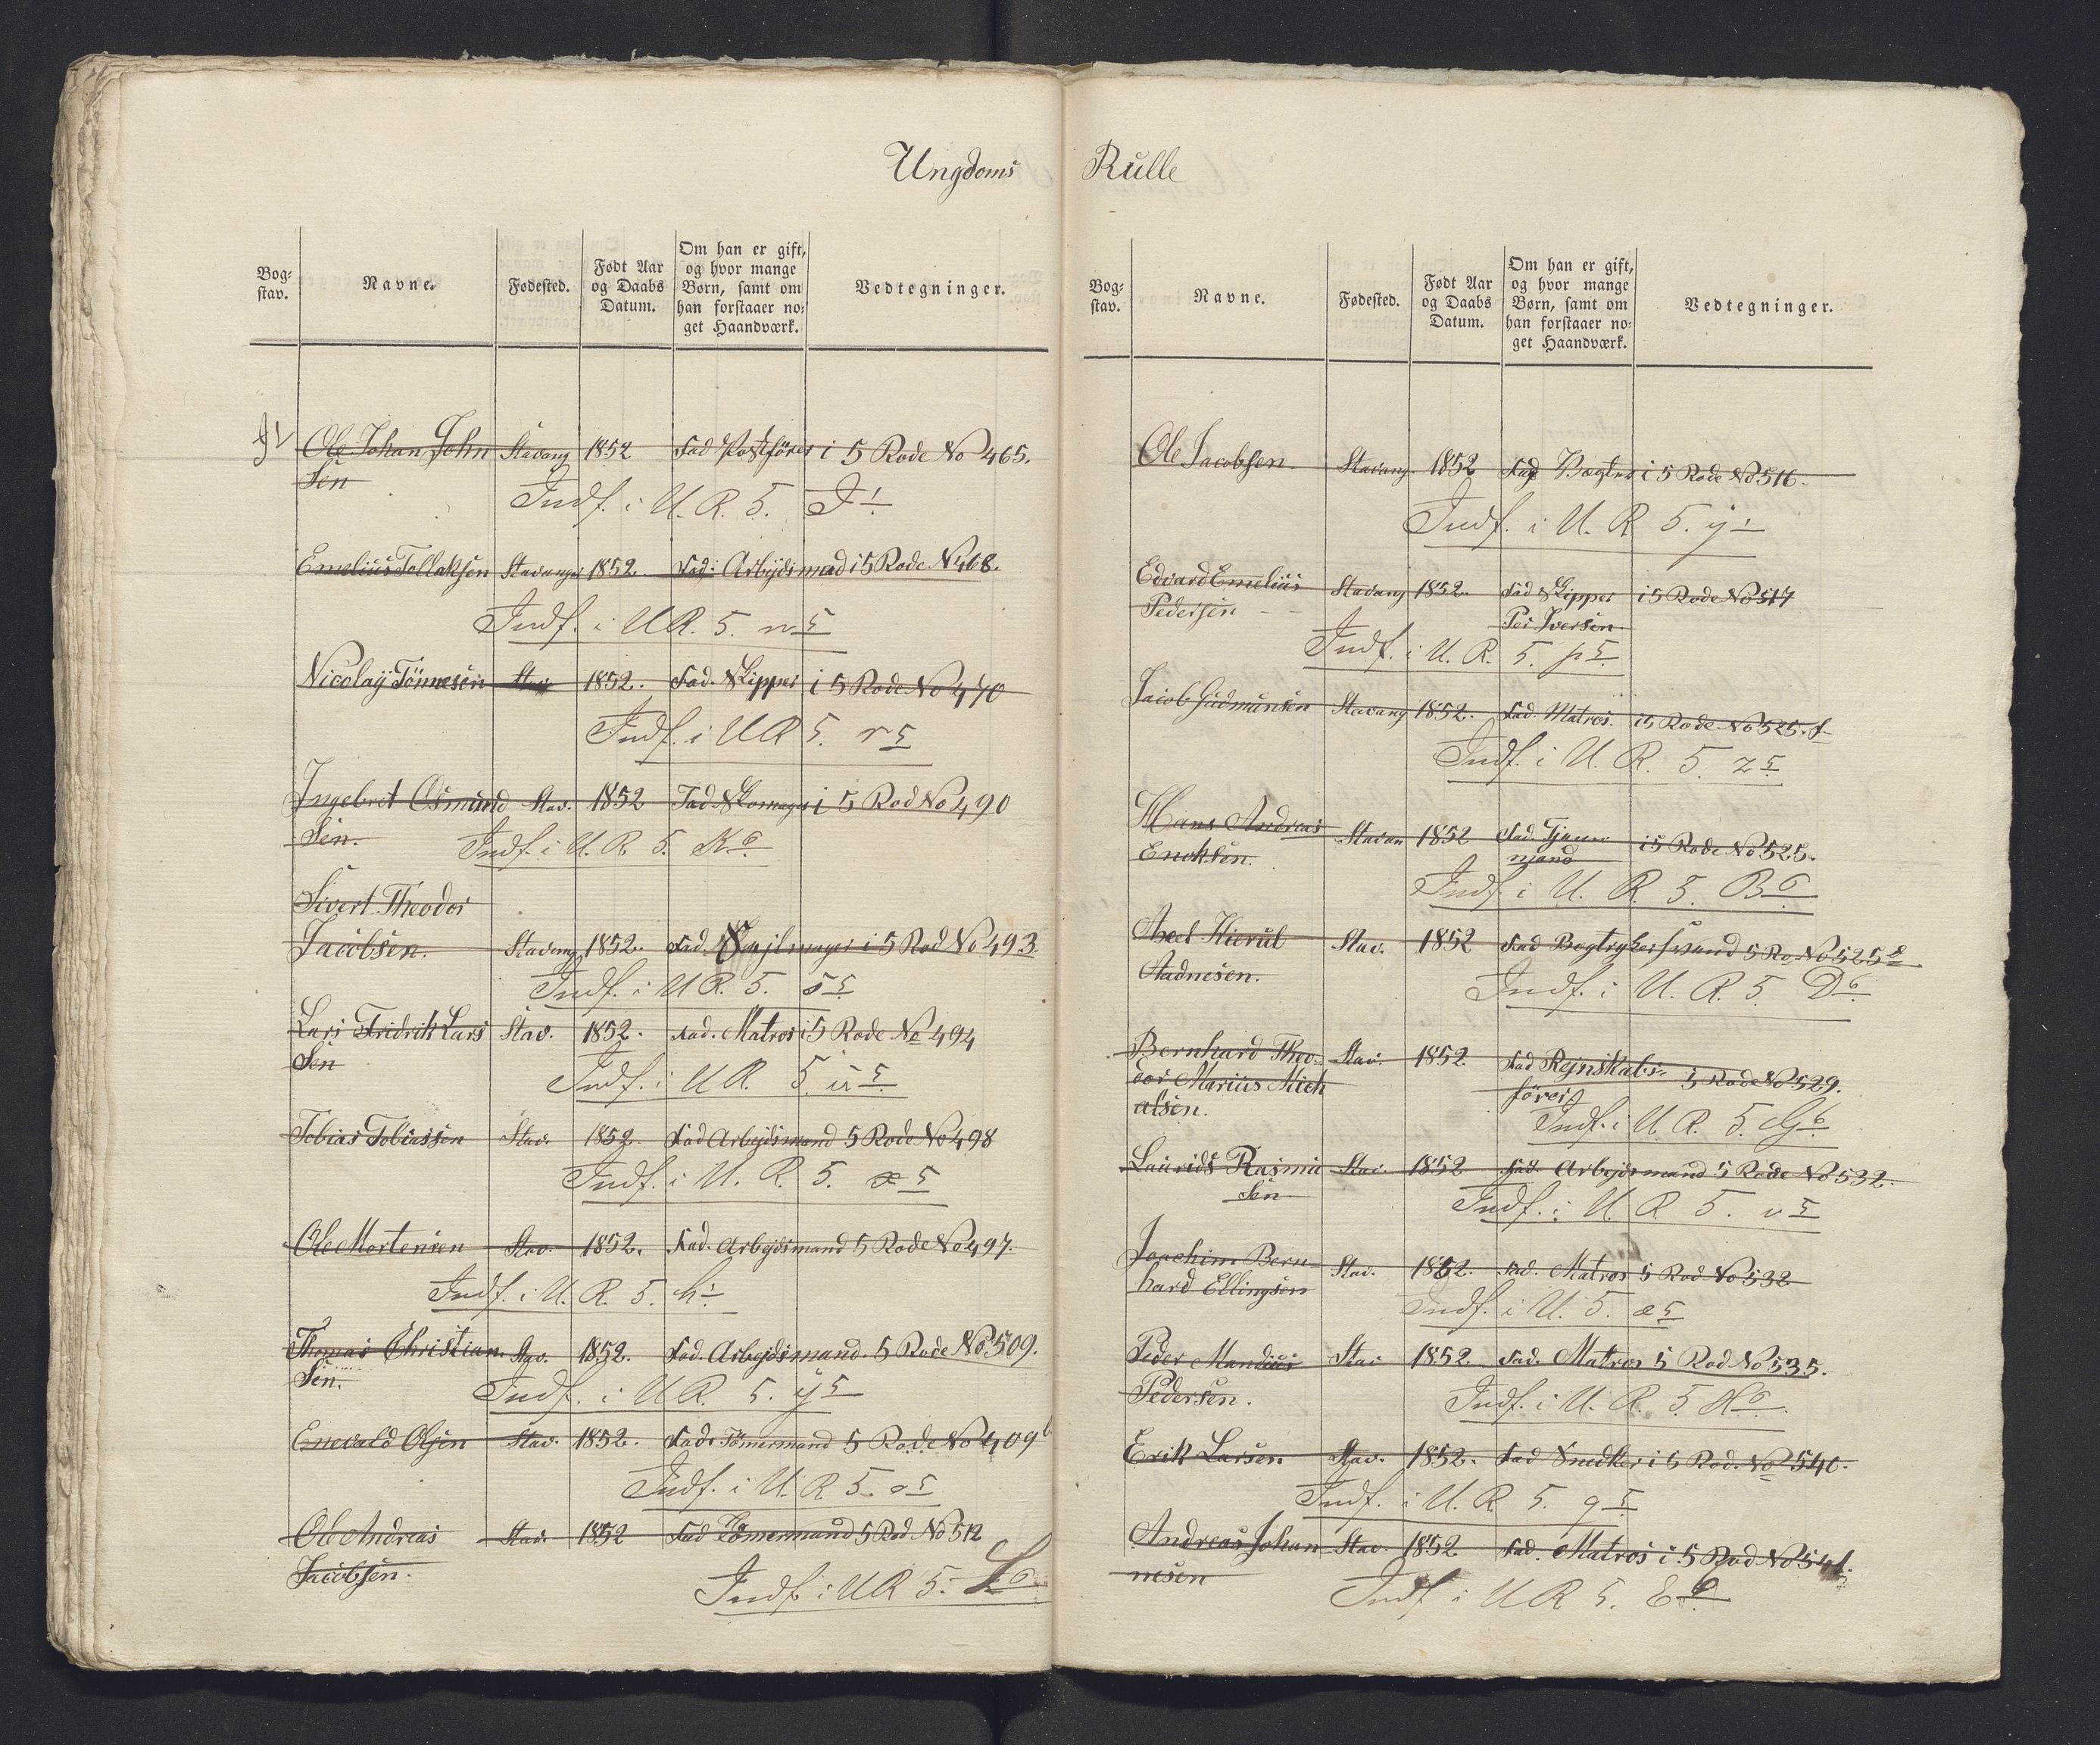 Ungdoms Rulle
Bog-
stav.
Navne.
Fødested.
Født Aar
og Daabs
Datum.
Om han er gift,
og hvor mange
Børn, samt om
han forstaaer no-
get Haandværk.
Vedtegninger.
Ole Johan John Stavang 1852 Fad Postförer i 5 Rode No 465.
Sen
Indf. i U. R. 5.
Emelius Tollaksen Stavanger 1852. Fad: Arbejdsmad i 5 Rode N 468.
Indf. i U R. 5. n 5
Nicolaÿ Tönnesen Stav 1852. Fad. Skipper i 5 Rode No 470
Indf. i U R 5. r 5
Ingebret Osmund Stav. 1852 Fad Skomager i 5 Rod No 490
Sen.
Indf. i U. R. 5. K 6
Sivert Theodor
Jacobsen. Stavang 1852. Fad. Sejlmager i 5 Rod No 493
Indf. i U R. 5. s 5
Lars Fridrik Lars Stav. 1852. Fad. Matros i 5 Rode No 494
Sen
Indf. i U R. 5 ü 5
Tobias Tobiassen Stav. 1852. Fad Arbejdsmand 5 Rode No 498
Indf. i U. R. 5. x 5
Ole Mortensen Stav. 1852. Fad. Arbejdsmand 5 Rode No 497.
Indf. i U. R. 5. h
Thomas Christian Stav. 1852. Fad. Arbejdsmand. 5 Rode No 509.
Sen.
Indf. i U R. 5. ÿ 5
Enevald Olsen Stav. 1852. Fad. Tömermand 5 Rode No 409 b
Indf. i U. R 5. o 5
Ole Andreas Stav. 1852 Fad Tömermand 5 Rod No 512
Jacobsen.
Indf. i U R 5. L 6
Bog-
stav.
Navne.
Fødested.
Født Aar
og Daabs
Datum.
Om han er gift,
og hvor mange
Børn, samt om
han forstaaer no-
get Haandværk.
Vedtegninger.
Ole Jacobsen. Stavang. 1852 Fad Vægter i 5 Rode No 516.
Indf. i U. R 5. ÿ
Edvard Emelius Stavang 1852. Fad Skipper i 5 Rode No 517
Pedersen Per Iversen.
Indf. i U. R. 5. p 5
Jacob Gudmunsen Stavang 1852. Fad. Matros. i 5 Rode No 525. f
Indf. i U. R. 5. z 5
Hans Andreas Stavan 1852 Fad. Tjenes i 5 Rode No 525.
Enoksen. mand
Indf. i U. R. 5. B 6
Axel Kierul Stav. 1852 Fad Bogtrykersvend 5 Ro No 525
Aadnesen.
Indf. i U. R. 5 D 6
Bernhard Theo- Stav. 1852. Fad Rejnskabs- 5 Rode No 529.
dor Marius Mich förer
alsen.
Indf. i U. R. 5. G 6
Laurids Rasmu Stav. 1852 Fad. Arbejdsmand 5 Rode No 532.
Sen
Indf. i U. R 5. v 5
Joachim Bern- Stav. 1852. Fad. Matros 5 Rod No 532
hard Ellingsen
Indf. i U. 5. æ 5
Peder Mandius Stav 1852. Fad. Matros 5 Rod No 535.
Pedersen.
Indf. i U. R. 5 H 6
Erik Larsen Stav. 1852. Fad Snedker i 5 Rod. No 540.
Indf. i U. R 5. q 5
Andreas Johan Stav. 1852 Fad. Matros i 5 Rod No 541.
nesen
Indf i U R 5. E 6